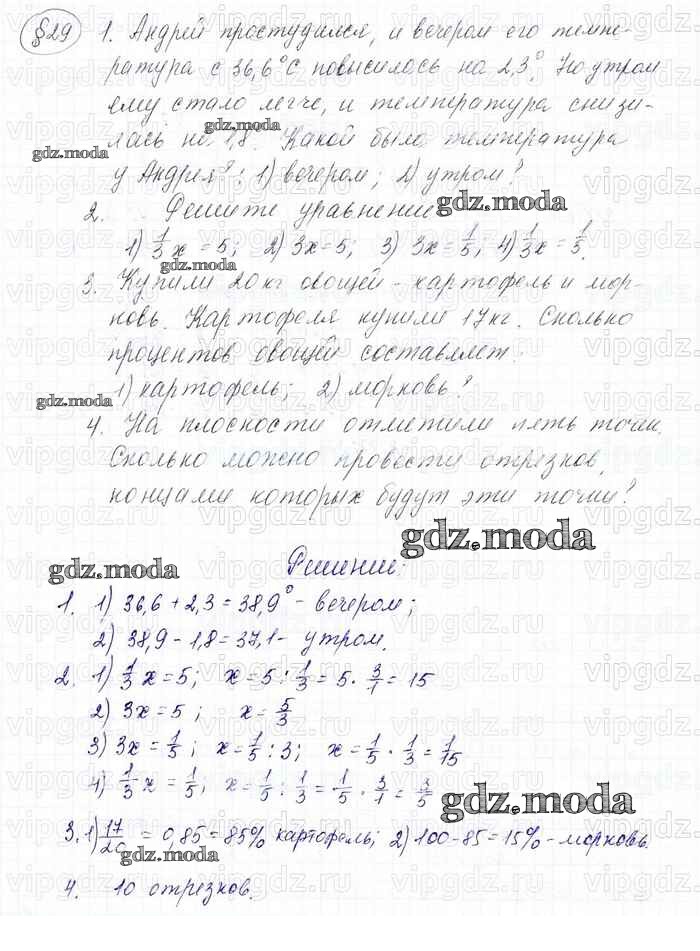 §29 1. Андрей простудился, и вечером его темпе-
ратура с 36,6°С повысилась на 2,3°. Но утром
ему стало легче, и температура снизи-
лась на 1,8. Какой была температура
у Андрея: 1) вечером; 2) утром?
2. Решите уравнение
1) 1/3 x = 5; 2) 3x = 5; 3) 3x = 1/5; 4) 1/3 x = 1/5.
3. Купили 20 кг овощей - картофель и мор-
ковь. Картофеля купили 17 кг. Сколько
процентов овощей составляет:
1) картофель; 2) морковь?
4. На плоскости отметили пять точек.
Сколько можно провести отрезков,
концами которых будут эти точки?
Решение:
1. 1) 36,6 + 2,3 = 38,9° - вечером;
2) 38,9 - 1,8 = 37,1 - утром.
2. 1) 1/3 x = 5; x = 5 : 1/3 = 5 · 3/1 = 15
2) 3x = 5; x = 5/3
3) 3x = 1/5; x = 1/5 : 3; x = 1/5 · 1/3 = 1/15
4) 1/3 x = 1/5; x = 1/5 : 1/3 = 1/5 · 3/1 = 3/5
3. 1) 17/20 = 0,85 = 85% картофель; 2) 100 - 85 = 15% - морковь.
4. 10 отрезков.
gdz.moda
gdz.moda
gdz.moda
gdz.moda
gdz.moda
gdz.moda
gdz.moda
gdz.moda
gdz.moda
vipgdz.ru